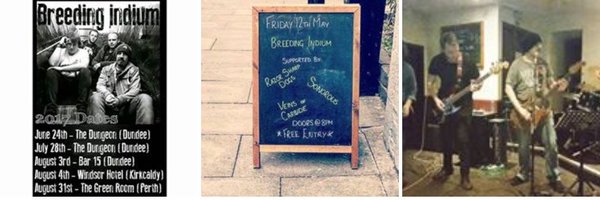 Breeding indium
2017 Dates
June 24th - The Dungeon (Dundee)
July 28th - The Dungeon (Dundee)
August 3rd - Bar 15 (Dundee)
August 4th - Windsor Hotel (Kirkcaldy)
August 31st - The Green Room (Perth)
FRIDAY 12TH MAY
BREEDING INDIUM
SUPPORTED BY
RAZOR SHARP
DOGS
SONOROUS
VEINS OF
CARBIDE
DOORS @ 8PM
* FREE ENTRY *